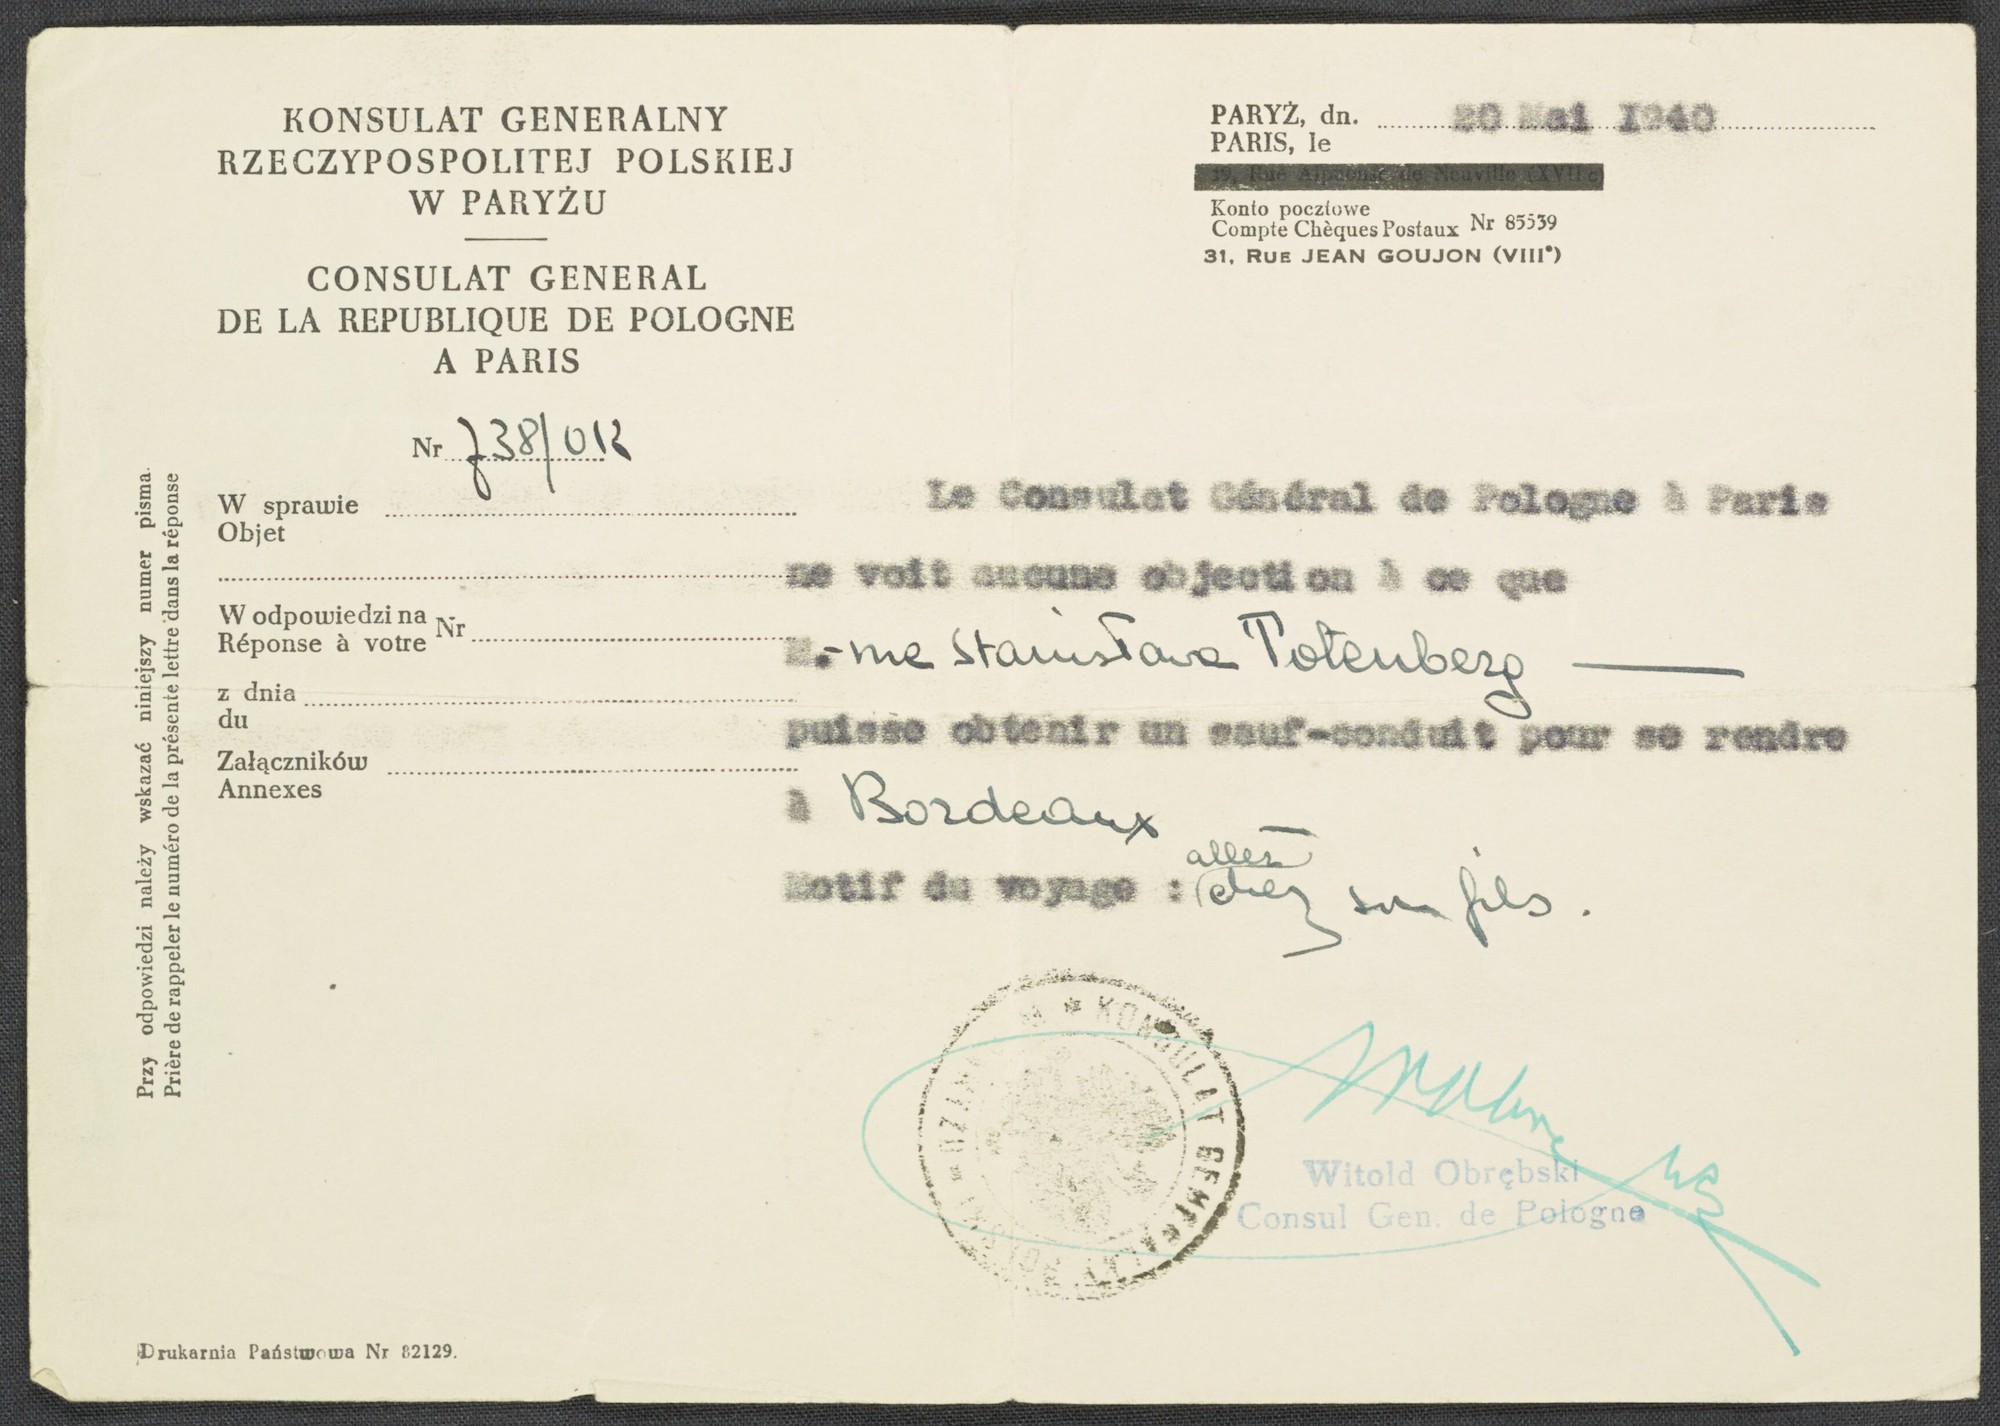 KONSULAT GENERALNY
RZECZYPOSPOLITEJ POLSKIEJ
W PARYŻU
CONSULAT GENERAL
DE LA REPUBLIQUE DE POLOGNE
A PARIS
PARYŻ, dn. 20 Mai 1940
PARIS, le
19, Rue Alphonse de Neuville (XVIIe)
Konto pocztowe
Compte Chèques Postaux Nr 85539
31, RUE JEAN GOUJON (VIIIe)
Nr 738/012
W sprawie
Objet
W odpowiedzi na
Réponse à votre Nr
z dnia
du
Załączników
Annexes
Przy odpowiedzi należy wskazać niniejszy numer pisma.
Prière de rappeler le numéro de la présente lettre dans la réponse
Le Consulat Général de Pologne à Paris
ne voit aucune objection à ce que
M.-me Stanisława Totenberg
puisse obtenir un sauf-conduit pour se rendre
à Bordeaux
Motif du voyage : aller chez son fils.
KONSULAT GENERALNY
Witold Obrębski
Consul Gen. de Pologne
Drukarnia Państwowa Nr 82129.